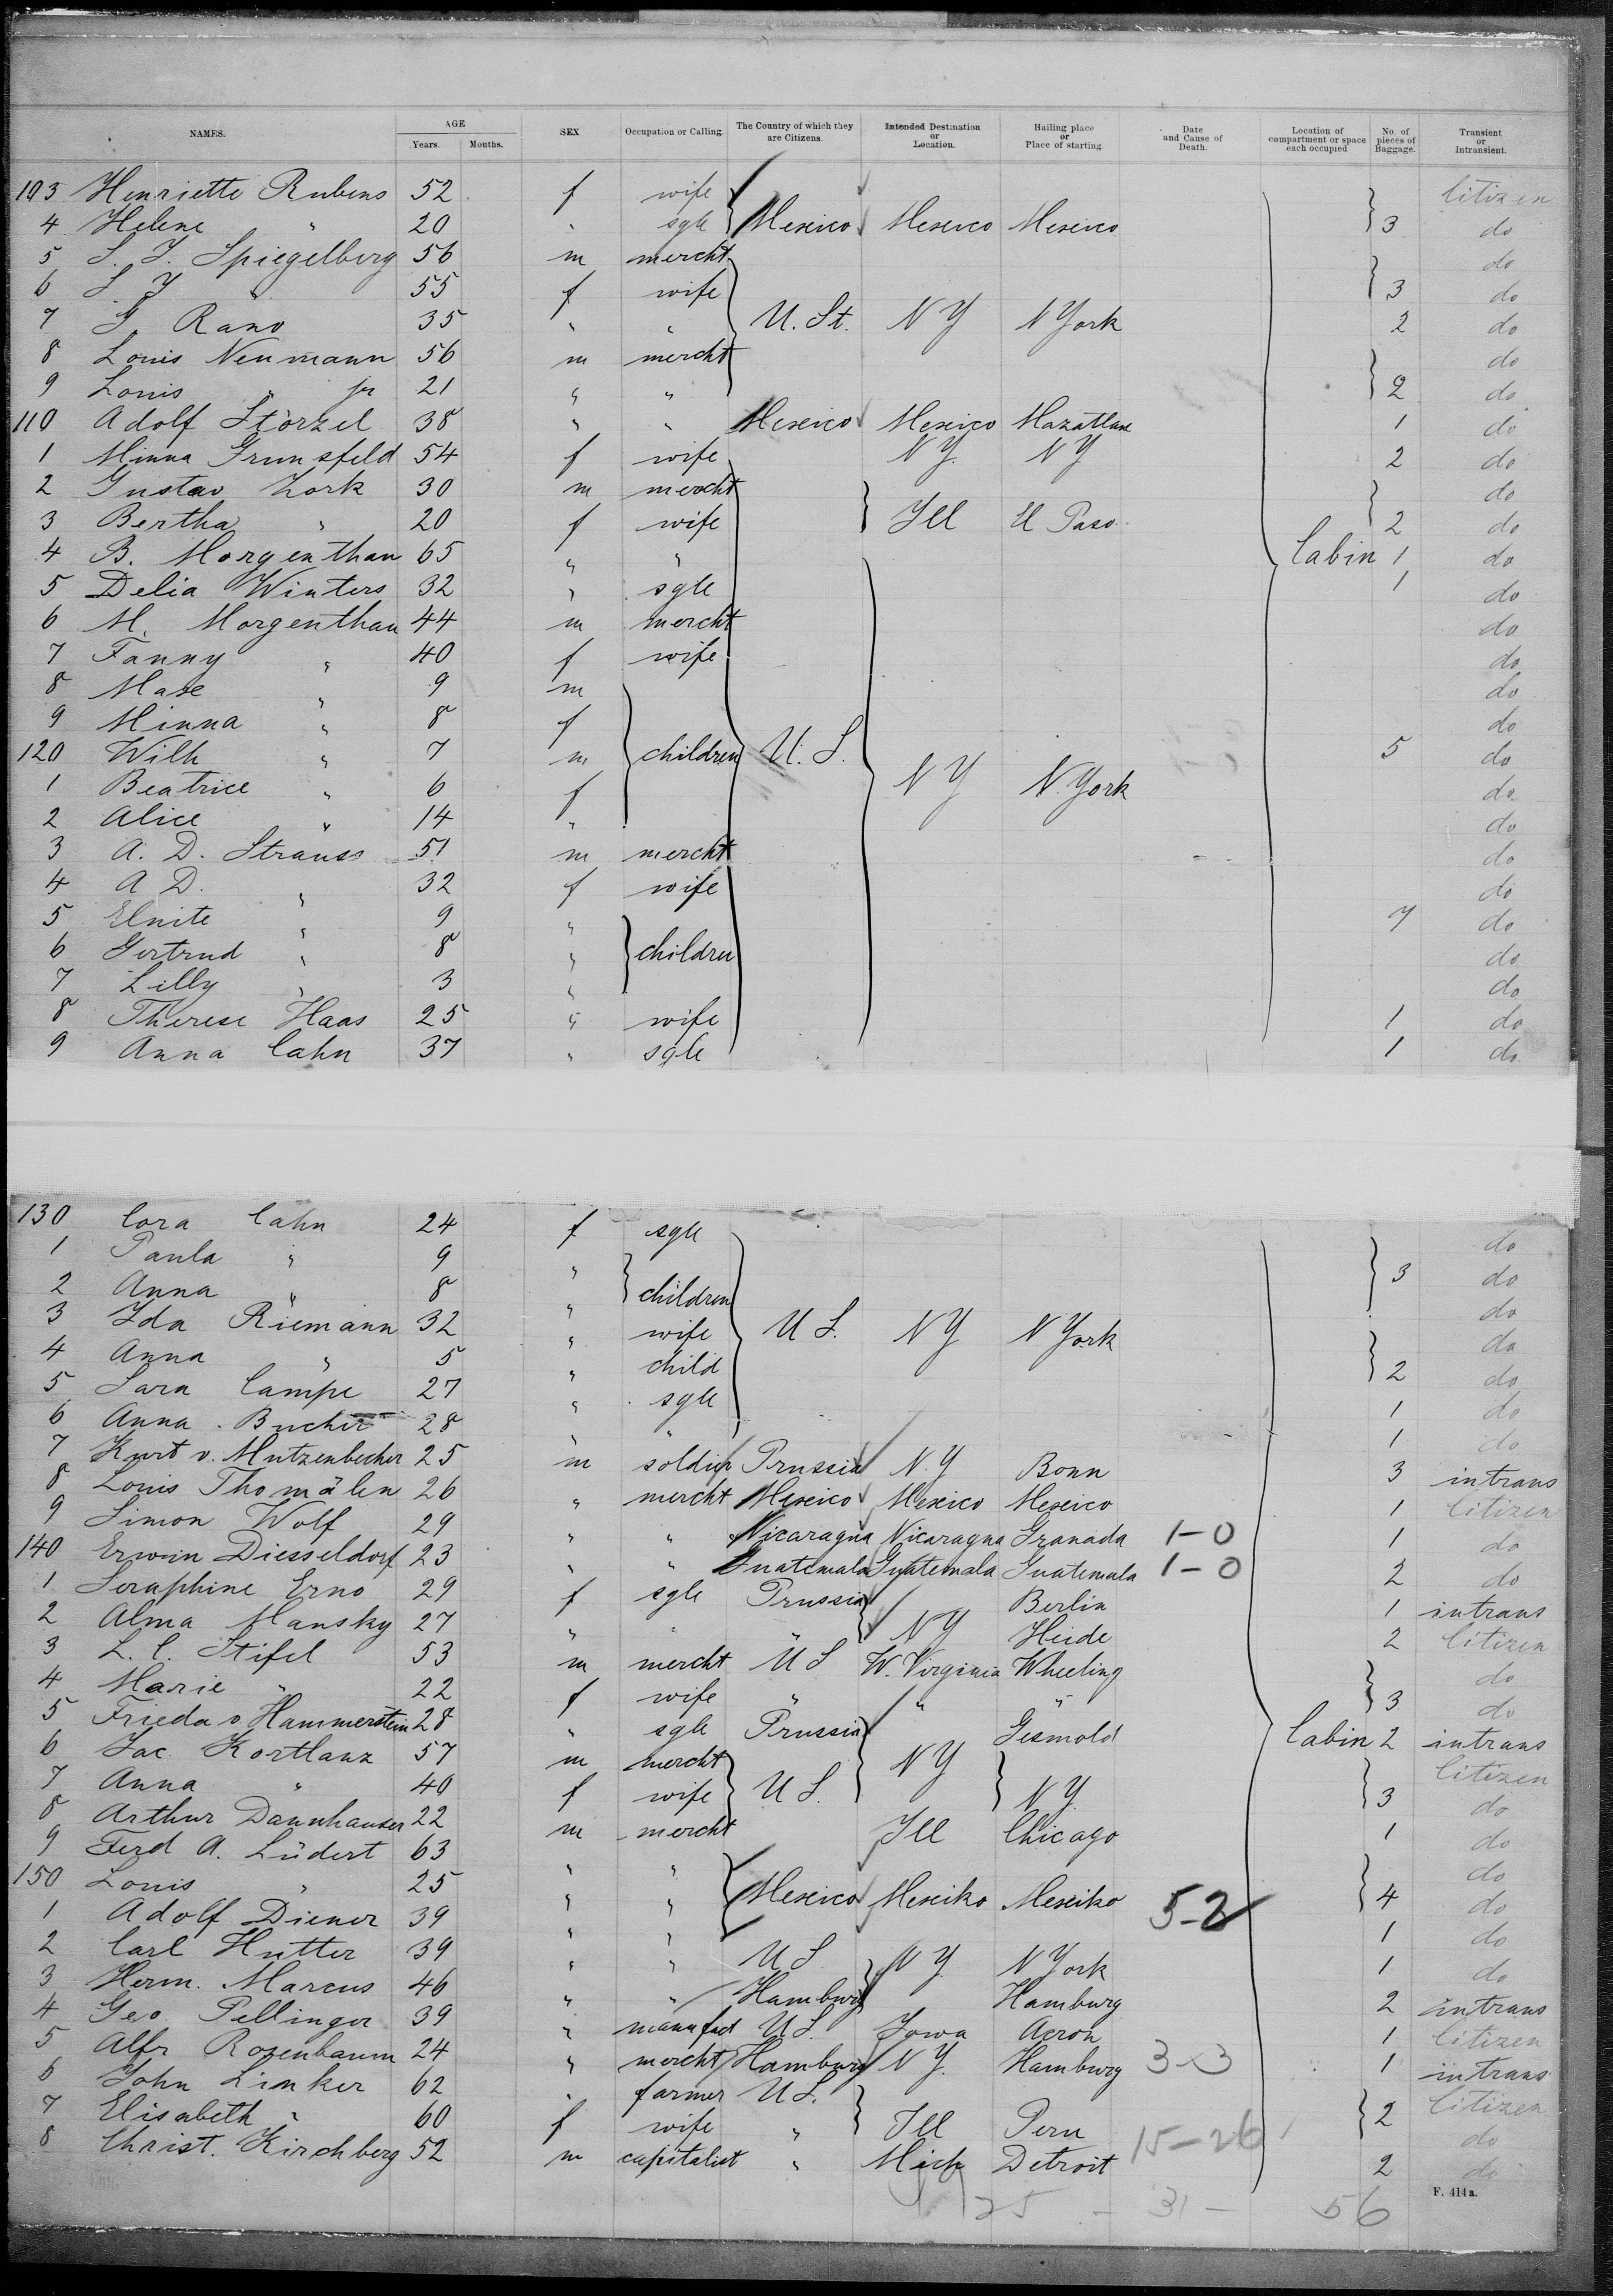 NAMES. AGE SEX Occupation or Calling. The Country of which they are Citizens. Intended Destination or Location. Hailing place or Place of starting. Date and Cause of Death. Location of compartment or space each occupied No. of pieces of Baggage. Transient or Intransient.
Years. Months.
103 Henriette Rubens 52 f wife Citizen
4 Helene " 20 " sgle Mexico Mexico Mexico 3 do
5 S. J. Spiegelberg 56 m mercht do
6 S J " 55 f wife 3 do
7 G. Rano 35 " " U. St. N Y N York 2 do
8 Louis Neumann 56 m mercht do
9 Louis " jr 21 " " 2 do
110 Adolf Störzel 38 " " Mexico Mexico Mazatlan 1 do
1 Minna Grunsfeld 54 f wife N Y. N Y 2 do
2 Gustav Zork 30 m mercht do
3 Bertha " 20 f wife Ill El Paso 2 do
4 B. Morgenthau 65 " " Cabin 1 do
5 Delia Winters 32 " sgle 1 do
6 M. Morgenthau 44 m mercht do
7 Fanny " 40 f wife do
8 Maxe " 9 m do
9 Minna " 8 f do
120 Wilh " 7 m children U. S. 5 do
1 Beatrice " 6 f N Y N. York do
2 Alice " 14 " do
3 A. D. Strauss 51 m mercht do
4 A D. " 32 f wife do
5 Elnite " 9 " 7 do
6 Gertrud " 8 " children do
7 Lilly " 3 " do
8 Therese Haas 25 " wife 1 do
9 Anna Cahn 37 " sgle 1 do
130 Cora Cahn 24 f sgle do
1 Paula " 9 " 3 do
2 Anna " 8 " children do
3 Ida Riemann 32 " wife U S. N Y N York do
4 Anna " 5 " child 2 do
5 Sara Campe 27 " sgle 1 do
6 Anna Bucher 28 " " 1 do
7 Kurt v. Mutzenbecher 25 m soldier Prussia N. Y Bonn 3 intrans
8 Louis Thomälen 26 " mercht Mexico Mexico Mexico 1 Citizen
9 Simon Wolf 29 " " Nicaragua Nicaragua Granada 1-0 1 do
140 Erwin Diesseldorf 23 " " Guatemala Guatemala Guatemala 1-0 2 do
1 Seraphine Erno 29 f sgle Prussia Berlin 1 intrans
2 Alma Mansky 27 " " " N Y Heide 2 Citizen
3 L. C. Stifel 53 m mercht U S W. Virginia Wheeling do
4 Marie " 22 f wife " " " 3 do
5 Frieda v Hammerstein 28 " sgle Prussia Gesmold Cabin 2 intrans
6 Jac. Kortlanz 57 m mercht N Y Citizen
7 Anna " 40 f wife U S. N Y. 3 do
8 Arthur Dannhauser 22 m mercht Ill Chicago 1 do
9 Ferd A. Lüdert 63 " " do
150 Louis " 25 " " Mexico Mexiko Mexiko 5-2 4 do
1 Adolf Diener 39 " " 1 do
2 Carl Hutter 39 " " U S N Y. N York 1 do
3 Herm. Marcus 46 " " Hamburg Hamburg 2 intrans
4 Geo. Pellinger 39 " manufact U S. Iowa Acron 1 Citizen
5 Alfr Rosenbaum 24 " mercht Hamburg N Y. Hamburg 3-3 1 intrans
6 John Linker 62 " farmer U S. Citizen
7 Elisabeth " 60 f wife " Ill Peru 15-26 2 do
8 Christ. Kirchberg 52 m capitalist " Mich Detroit 2 do
F. 414 a.
25 - 31 - 56